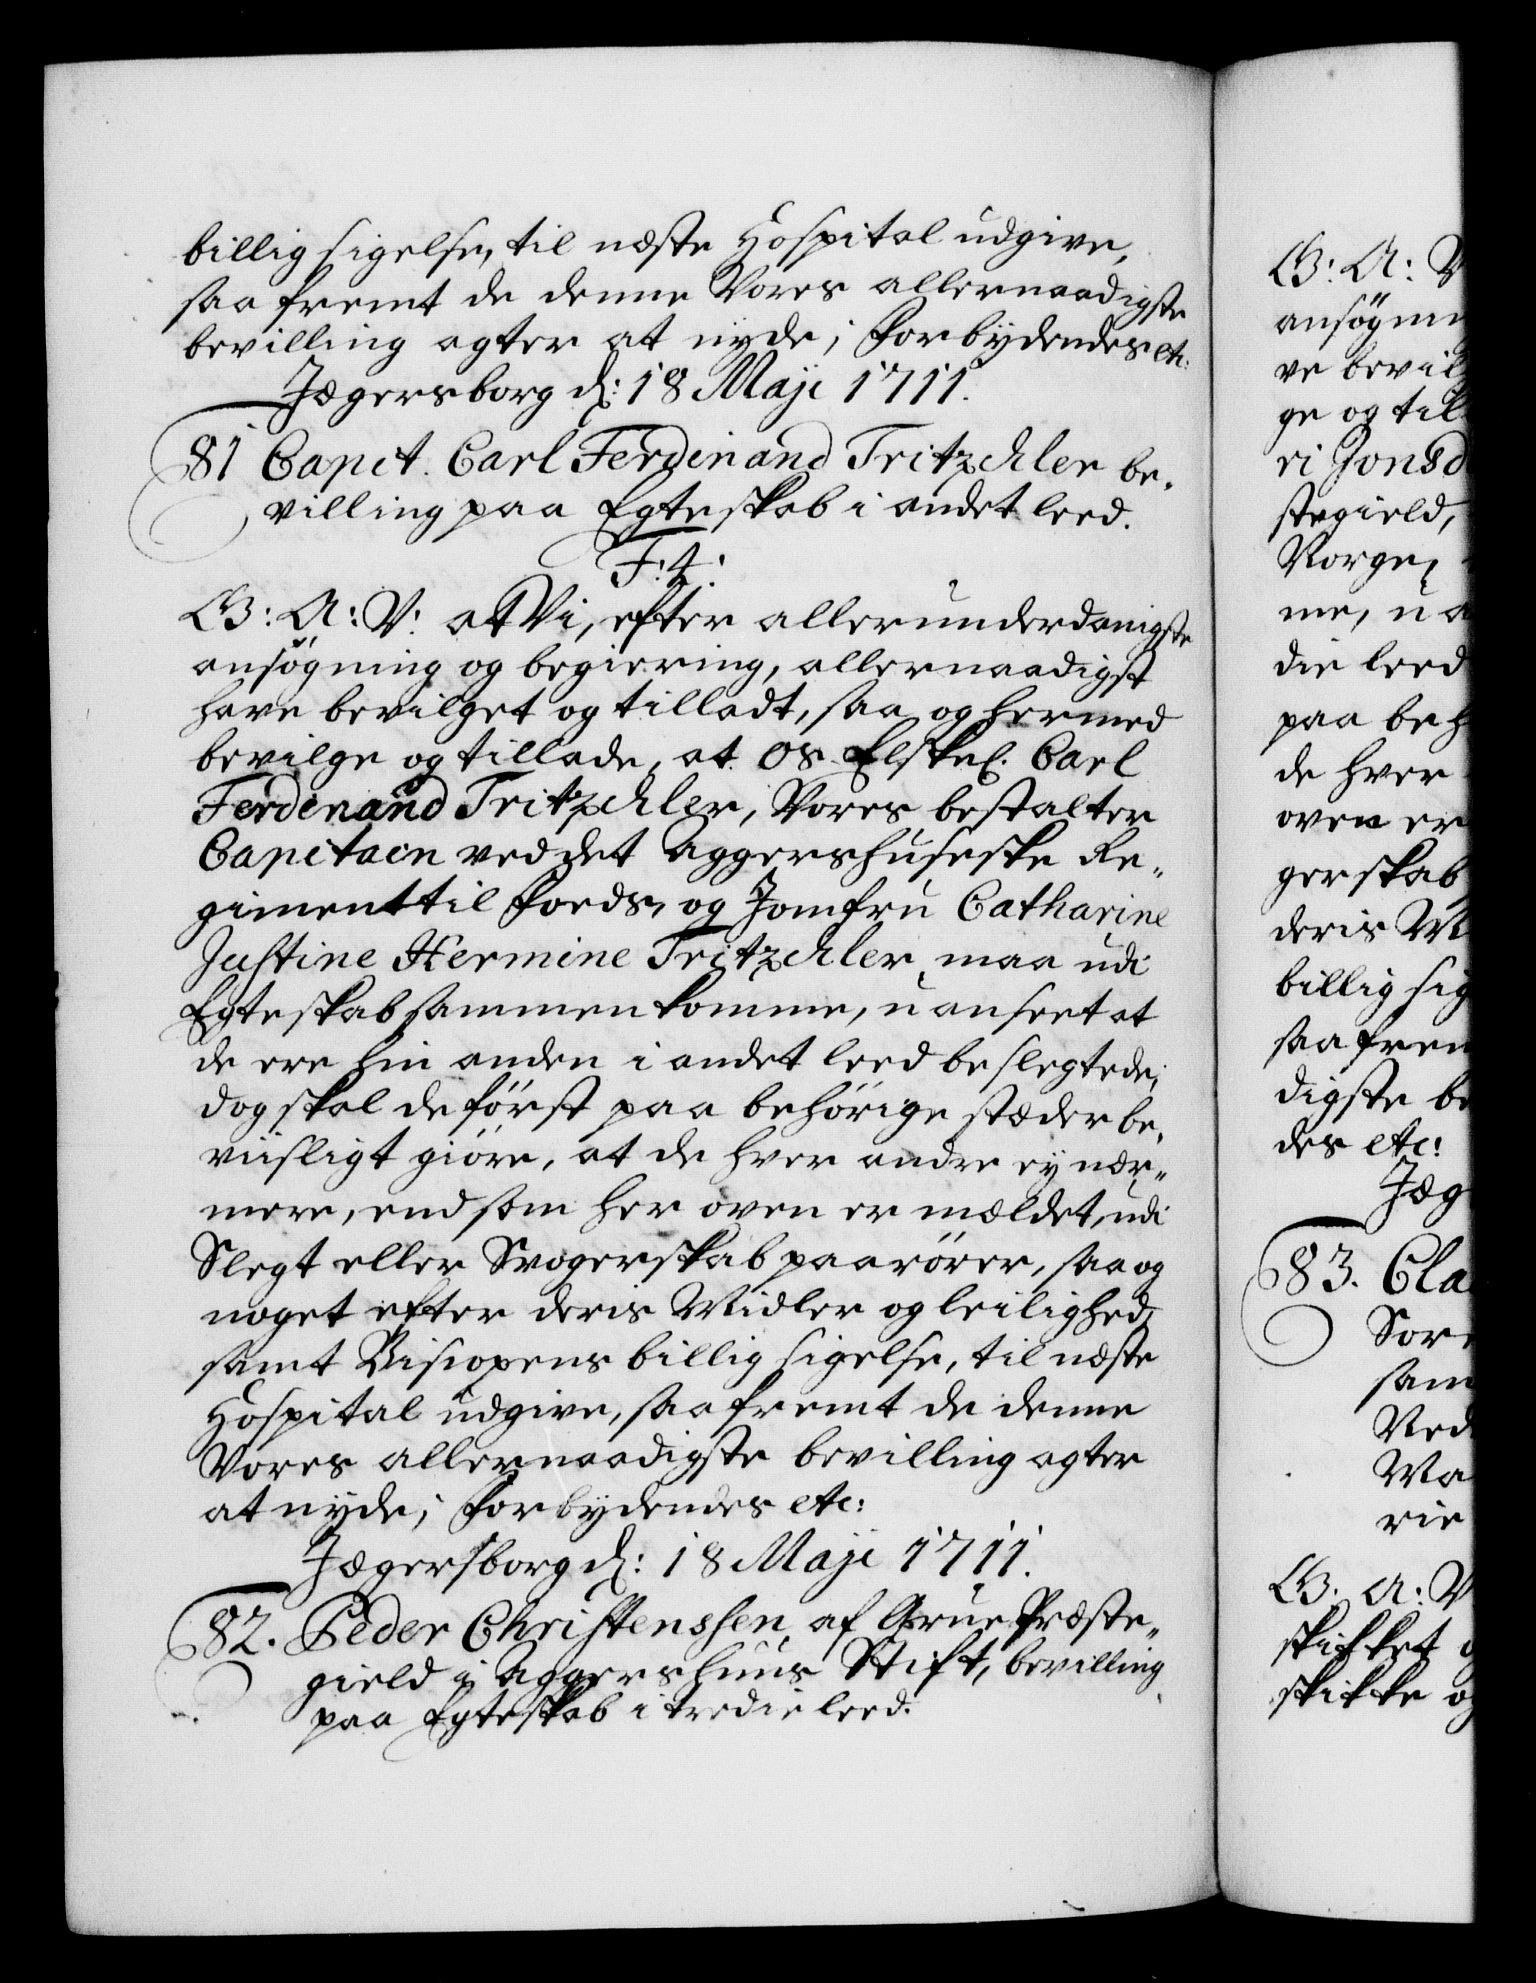 billig sigelse, til næste Hospital udgive,
saa fremt de denne Vores allernaadigste
bevilling agter at nyde; Forbydendes etc:
Jægersborg d: 18 Maji 1711.
81 Capit. Carl Ferdinand Tritzschler be-
villing paa Egteskab i andet leed.
F: 4:
G: A: V: at Vi, efter allerunderdanigste
ansøgning og begiering, allernaadigst
have bevilget og tilladt, saa og hermed
bevilge og tillade, at os Elskel. Carl
Ferdinand Tritzschler, Vores bestalter
Capitain ved det Aggershuseske Re-
giment til Foeds, og Jomfru Catharine
Justine Hermine Tritzschler, maa udi
Egteskab sammen komme, u anseet at
de ere hin anden i andet leed beslegtede;
dog skal de først paa behörige stæder be-
viisligt giöre, at de hver andre ey nær-
mere, end som her oven er mældet, udi
Slegt eller Svogerskab paarörer, saa og
noget efter deris Midler og leilighed,
samt Bisiopens billig sigelse, til næste
Hospital udgive, saa fremt de denne
Vores allernaadigste bevilling agter
at nyde; Forbydendes etc:
Jægersborg d: 18 Maji 1711.
82. Peder Christenssen, af Grue Præste-
gield i Aggershuus Stift, bevilling
paa Egteskab i tredie leed.
G: A: V
ansøgni
ve bevil
ge og til
ri Jonsd
stegield,
Norge,
me, u a
die leed
paa beh
de hver
oven er
gerskab
deris M
billig sig
saa frem
digste be
des etc:
Jæg
83. Cla
Sor
sam
Ved
Ma
rie
G: A: V
skikket o
skikke og